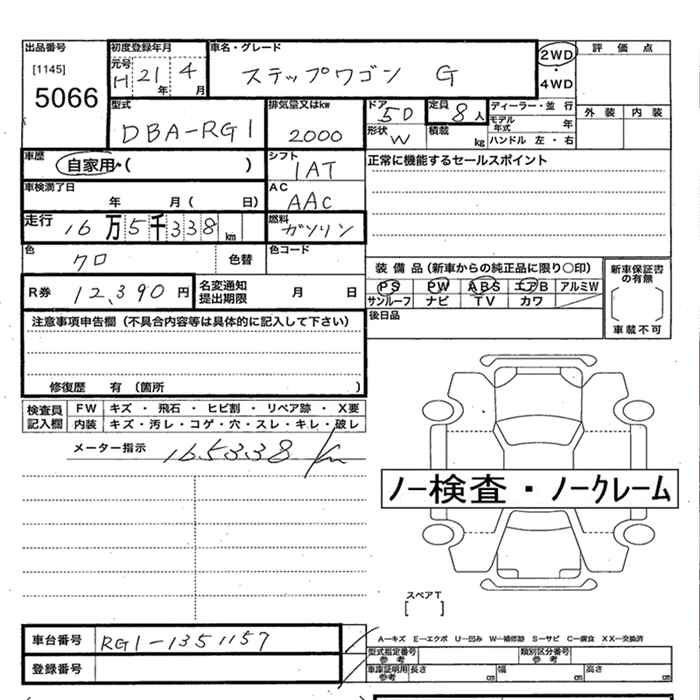 出品番号 初度登録年月 車名・グレード 2WD 評価点
[1145] 元号 H 21 年 4 月 ステップワゴン G ・
5066 4WD
型式 排気量又はkw ドア 5D 定員 8人 ディーラー・並行 外装 内装
DBA-RG1 2000 形状 W 積載 kg モデル年式 年
ハンドル 左・右
車歴 自家用・( ) シフト 1AT 正常に機能するセールスポイント
車検満了日 年 月( 日) AC AAC
走行 16万5千338km 燃料 ガソリン
色 クロ 色替 色コード
装備品(新車からの純正品に限り〇印) 新車保証書の有無
R券 12,390円 名変通知提出期限 月 日 PS PW ABS エアB アルミW
サンルーフ ナビ TV カワ
注意事項申告欄(不具合内容等は具体的に記入して下さい) 後日品 車載不可
修復歴 有(箇所 )
検査員記入欄 FW キズ・飛石・ヒビ割・リペア跡・X要
内装 キズ・汚レ・コゲ・穴・スレ・キレ・破レ
メーター指示 165338 km
ノー検査・ノークレーム
スペアT
[ ]
車台番号 RG1-1351157 A-キズ E-エクボ U-凹み W-補修跡 S-サビ C-腐食 XX-交換済
登録番号 型式指定番号 参考 類別区分番号 参考
車庫証明用 参考 長さ cm 幅 cm 高さ cm